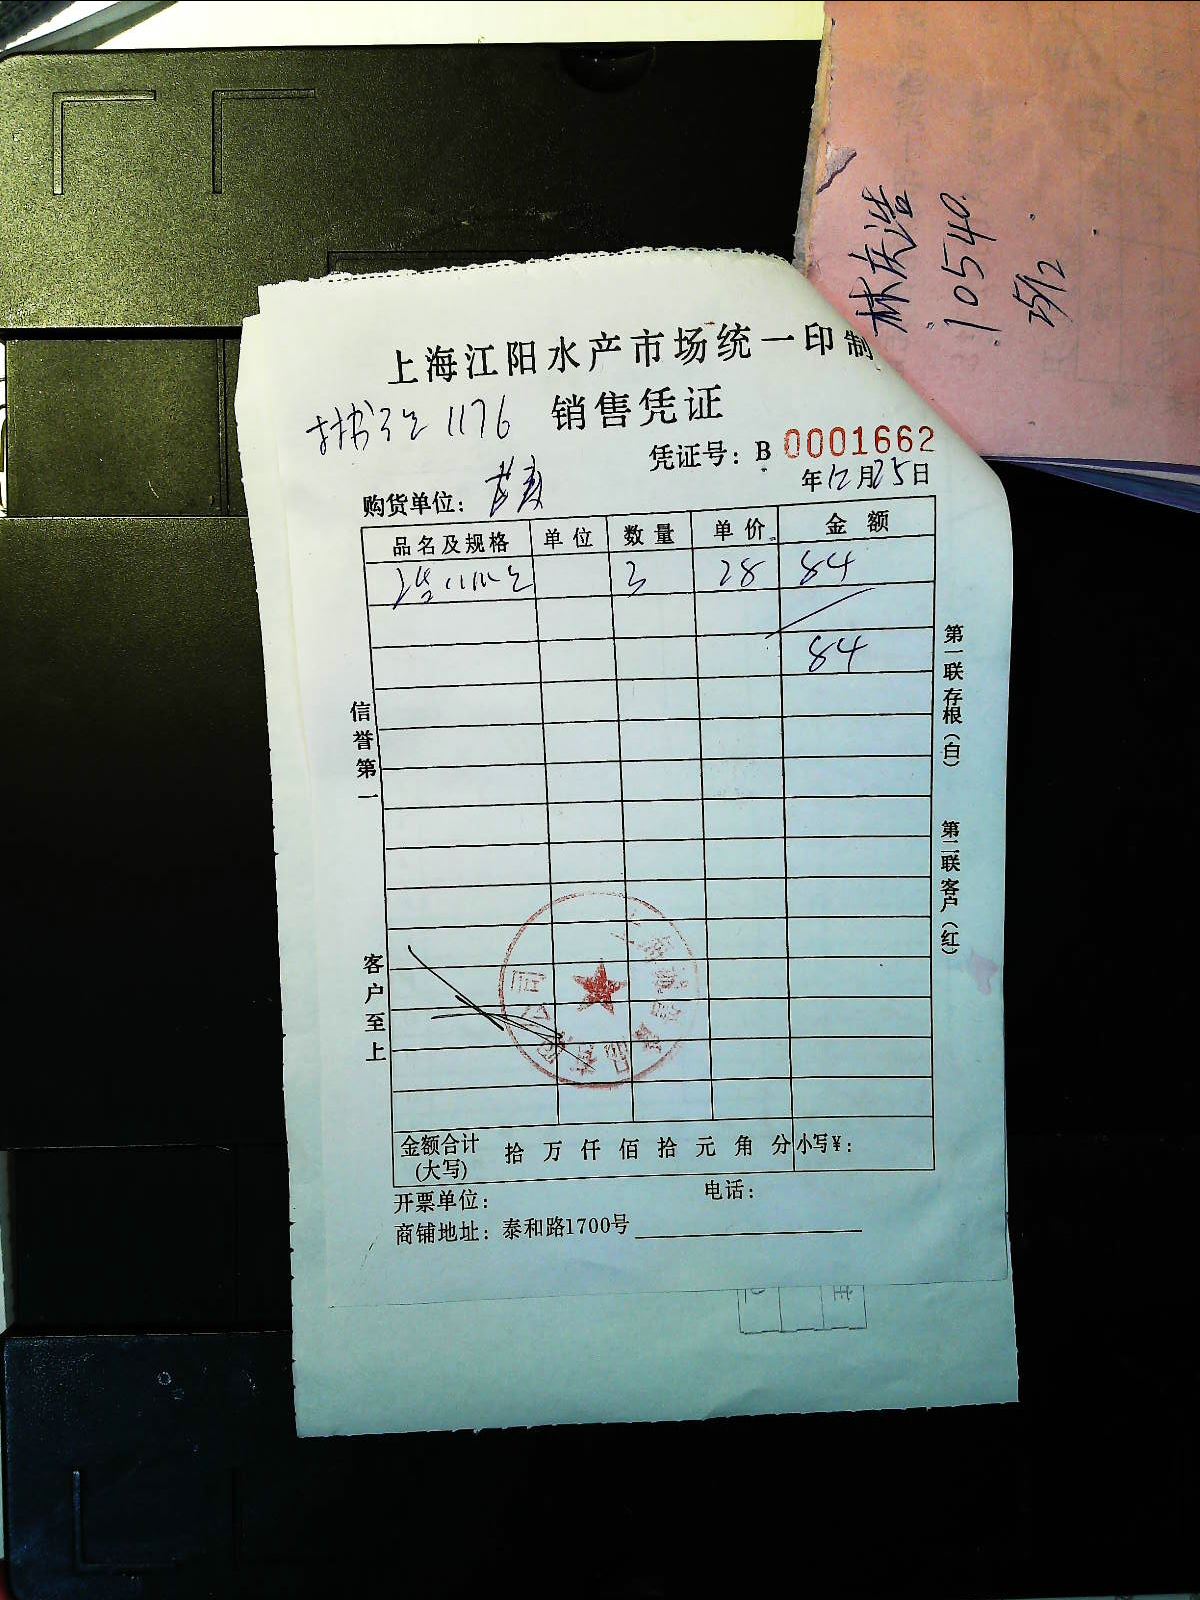 林庆浩
10540.
25/12
上海江阳水产市场统一印制
1176 销售凭证
凭证号：B 0001662
购货单位： 年12月25日
品名及规格 单位 数量 单价 金额
3 28 84
84
信誉第一
客户至上
第一联存根（白）
第二联客户（红）
金额合计(大写) 拾 万 仟 佰 拾 元 角 分 小写¥：
开票单位： 电话：
商铺地址：泰和路1700号